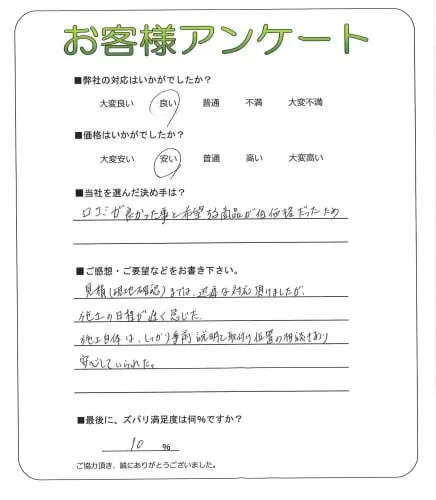 お客様アンケート
■弊社の対応はいかがでしたか?
大変良い 良い 普通 不満 大変不満
■価格はいかがでしたか?
大変安い 安い 普通 高い 大変高い
■当社を選んだ決め手は?
口コミが良かった事と希望する商品が低価格だったため
■ご感想・ご要望などをお書き下さい。
見積(現地確認)までは、迅速な対応頂けましたが、
施工の日程が遅く感じた。
施工自体は、しっかり事前説明と取付け位置の相談もあり
安心していられた。
■最後に、ズバリ満足度は何%ですか?
90 %
ご協力頂き、誠にありがとうございました。